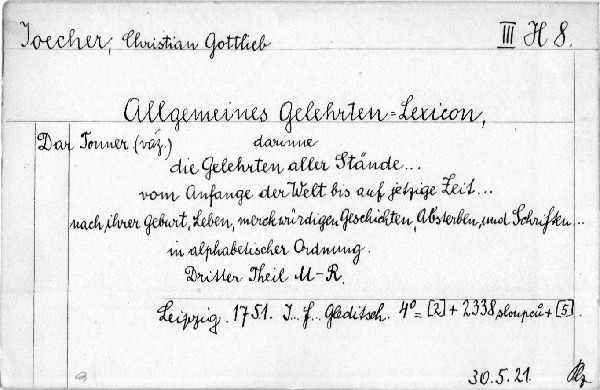 Joecher, Christian Gottlieb III H 8.
Allgemeines Gelehrten=Lexicon,
Dar Tonner (váz.) darinne
die Gelehrten aller Stände...
vom Anfange der Welt bis auf jetzige Zeit...
nach ihrer Geburt, Leben, merckwürdigen Geschichten, Absterben, und Schriften...
in alphabetischer Ordnung.
Dritter Theil M-R.
Leipzig. 1751. J... f... Gleditsch. 4° = [2] + 2338 sloupců + [5].
30.5.21.